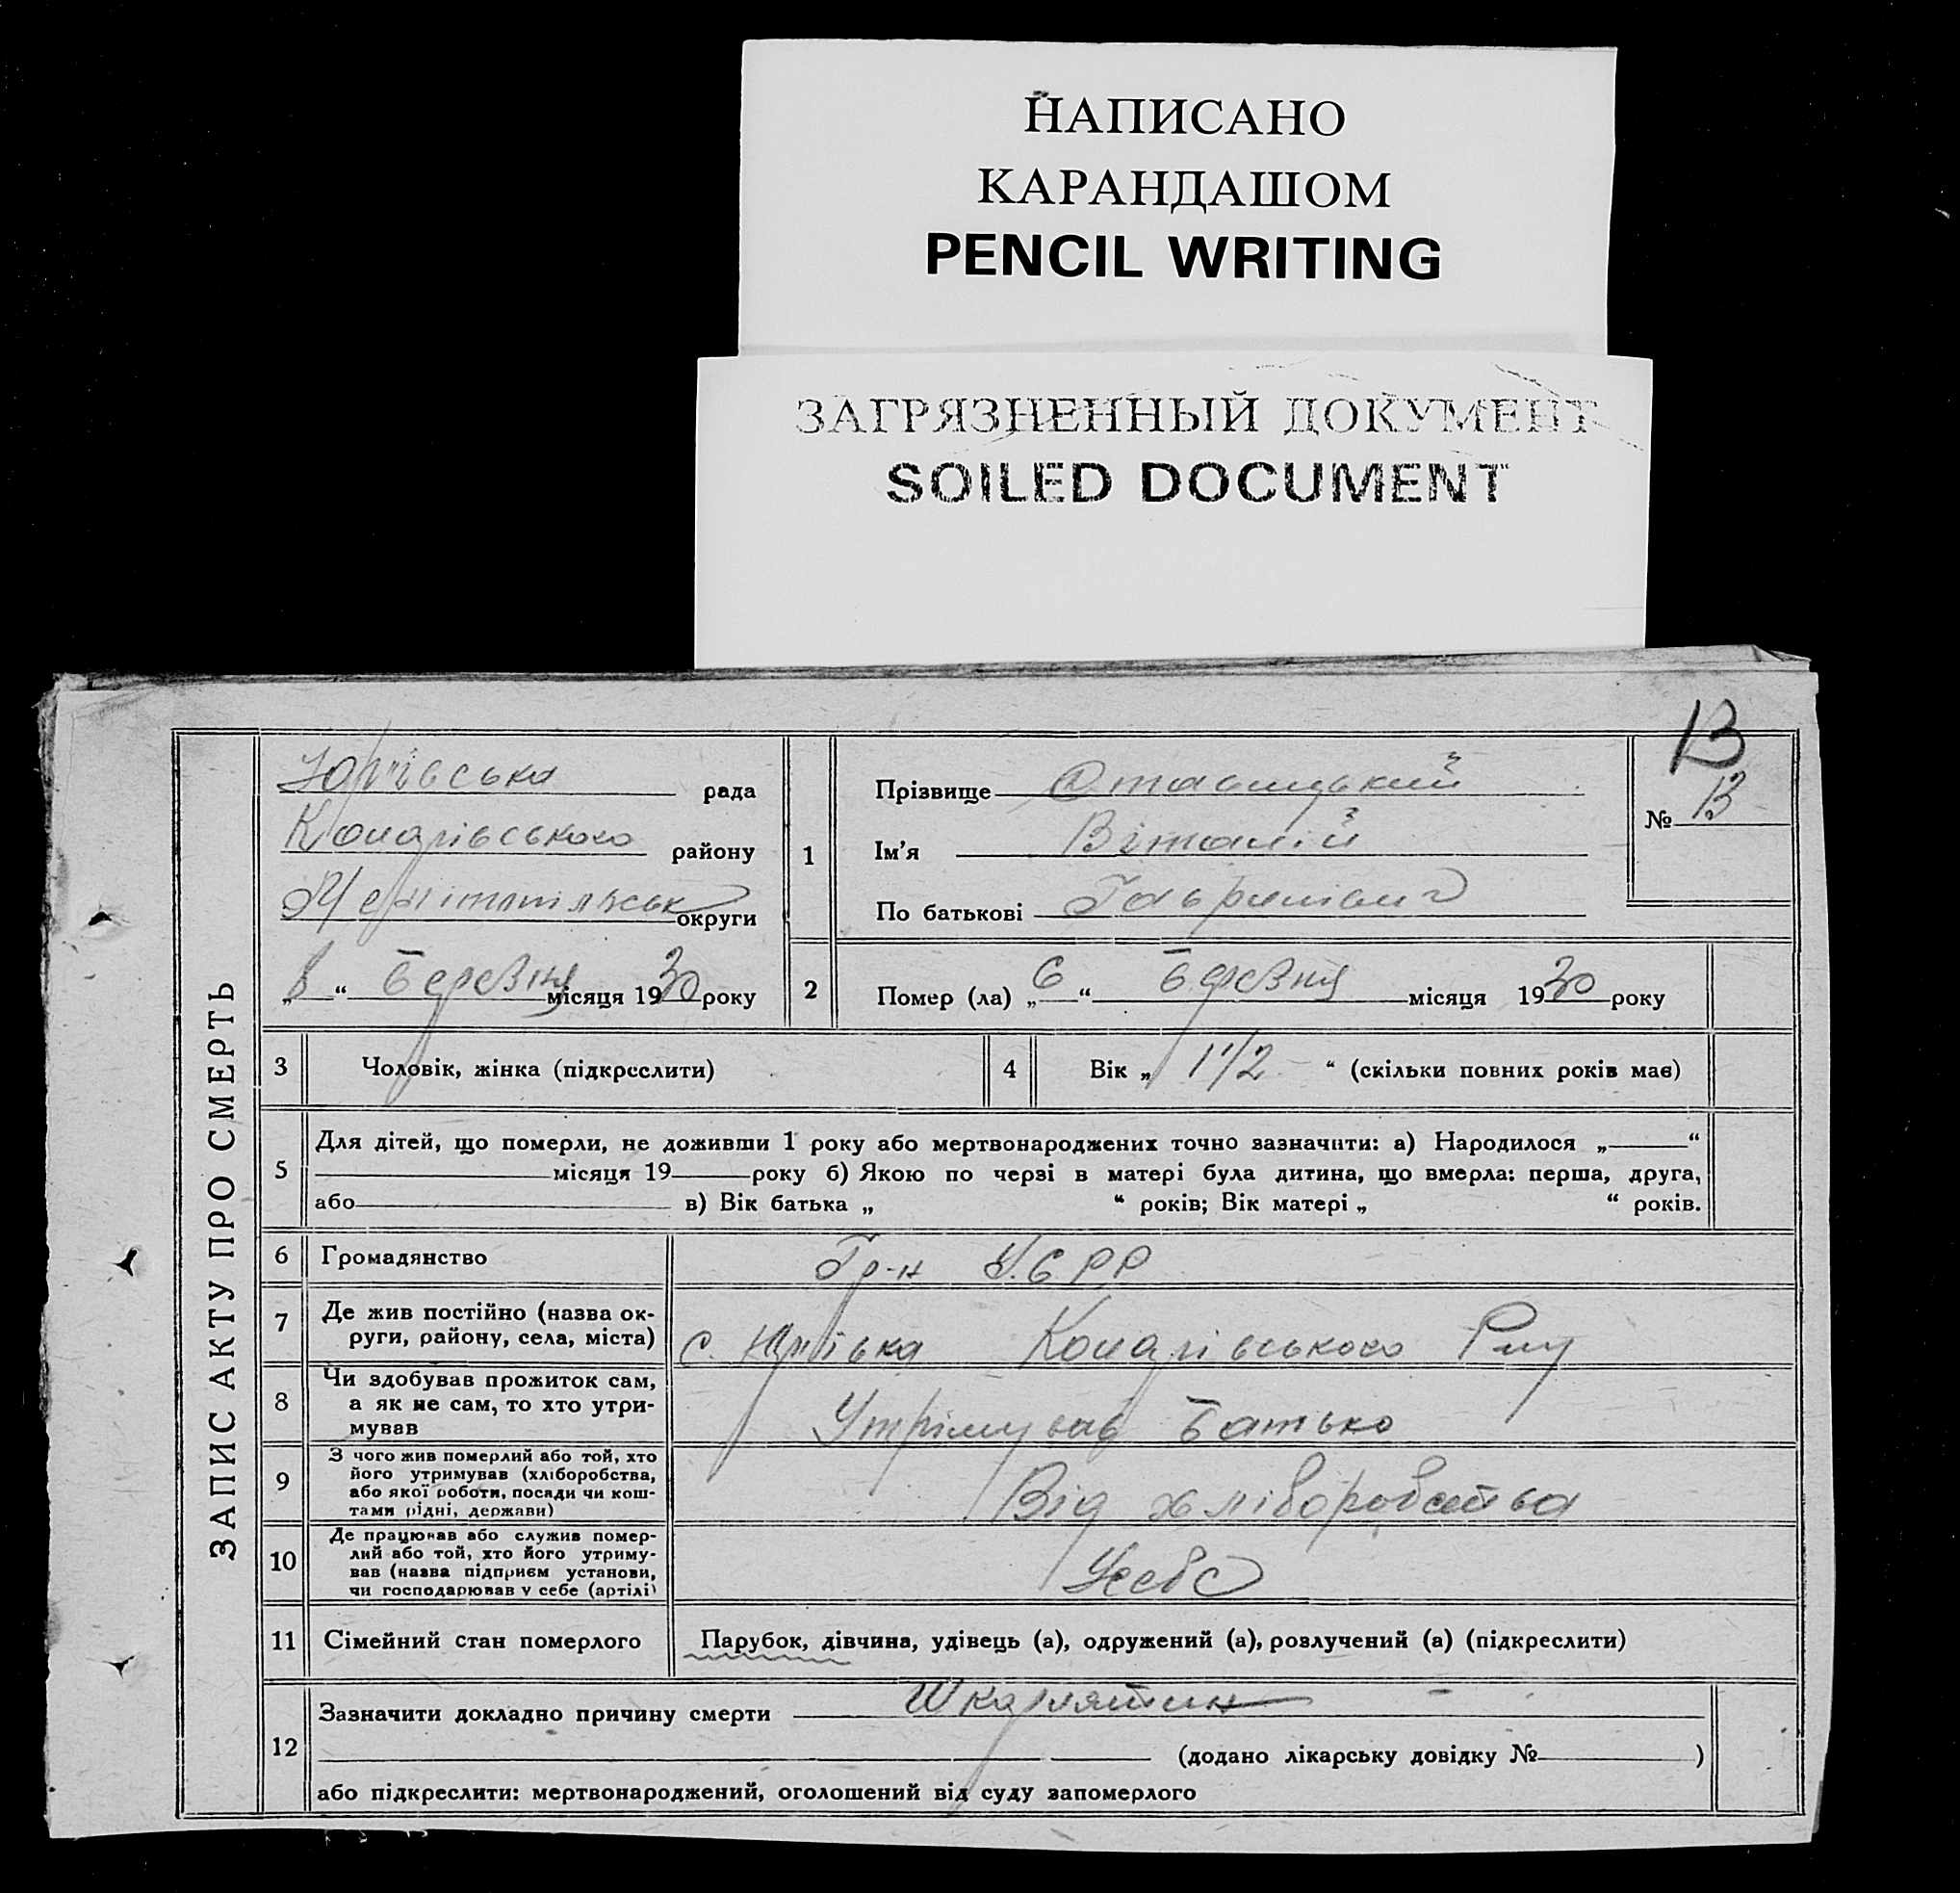 НАПИСАНО
КАРАНДАШОМ
PENCIL WRITING
ЗАГРЯЗНЕННЫЙ ДОКУМЕНТ
SOILED DOCUMENT
13
ЗАПИС АКТУ ПРО СМЕРТЬ
Юрівська рада
району
округи
„8“ Березня місяця 1930 року
1
Прізвище Ставицький
Ім'я Віталій
По батькові Гаврилович
№ 13
2
Помер (ла) „6“ Березня місяця 1930 року
3 Чоловік, жінка (підкреслити)
4 Вік „ 1 1/2 “ (скільки повних років має)
5 Для дітей, що померли, не доживши 1 року або мертвонароджених точно зазначити: а) Народилося „ “
місяця 19 року б) Якою по черзі в матері була дитина, що вмерла: перша, друга,
або в) Вік батька „ “ років; Вік матері „ “ років.
6 Громадянство Гр-н У.С.Р.Р
7 Де жив постійно (назва ок-
руги, району, села, міста) с. Юрівка
8 Чи здобував прожиток сам,
а як не сам, то хто утри-
мував Утрімував батько
9 З чого жив померлий або той, хто
його утримував (хліборобства,
або якої роботи, посади чи кош-
тами рідні, держави) Від хліборобства
10 Де працював або служив помер-
лий або той, хто його утриму-
вав (назва підприєм установи,
чи господарював у себе (артілі) У себе
11 Сімейний стан померлого Парубок, дівчина, удівець (а), одружений (а), розлучений (а) (підкреслити)
12 Зазначити докладно причину смерти Шкарлятин
(додано лікарську довідку № )
або підкреслити: мертвонароджений, оголошений від суду запомерлого